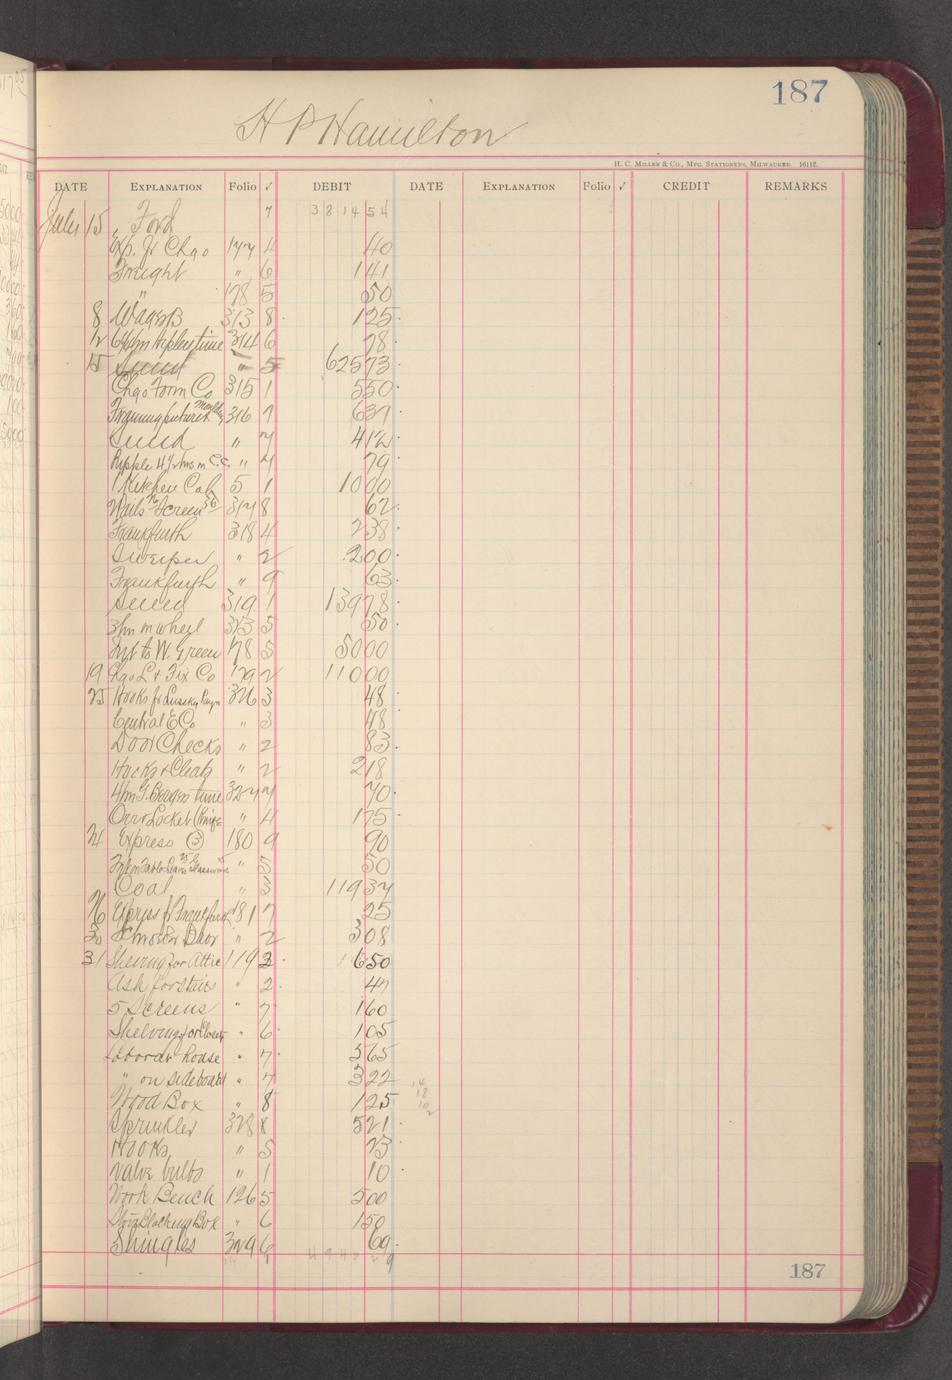 187
H P Hamilton
H. C. Miller & Co., Mfg. Stationers, Milwaukee. 16112.
DATE EXPLANATION Folio ✓ DEBIT DATE EXPLANATION Folio ✓ CREDIT REMARKS
15 " Ford 7 3 8 1 4 5 4
Exp. fr Chgo 177 4 40
Freight " 6 141
" 178 5 50
8 Wages B 313 8 125
12 time 314 6 78
15 Sund " 5 62573
Chgo Form Co 315 1 550
316 7 637
Sund " 7 412
Ripple C.C. " 7 79
1 Kitchen Cab 5 1 1000
Nails Screen 317 8 62
Frankfurth 318 4 238
Sweeper " 2 200
Frankfurth " 9 63
Sund 319 1 13978
3 hm m wheel 313 5 50
to W. Green 178 5 5000
19 Chgo L & Fix Co 179 2 11000
25 Hooks fr 326 3 48
Central E Co " 3 48
Door Checks " 2 83
Hocks & Cleats " 2 218
time 327 7 70
Locket Knife " 4 175
24 Express ③ 180 9 90
" 5 50
Coal " 3 11937
26 Express fr 181 7 25
30 Door " 2 308
31 Shelving for Attic 119 3 650
Ash for stairs " 2 47
5 Screens " 7 160
Shelving for Closet " 6 105
Labor on House " 7 565
" on sideboard " 7 322
Wood Box " 8 125
Sprinkler 328 8 521
Hooks " 5 23
Valve bulbs " 1 10
Work Bench 126 5 500
Shoe Blacking Box " 6 150
Shingles 329 6 69
187